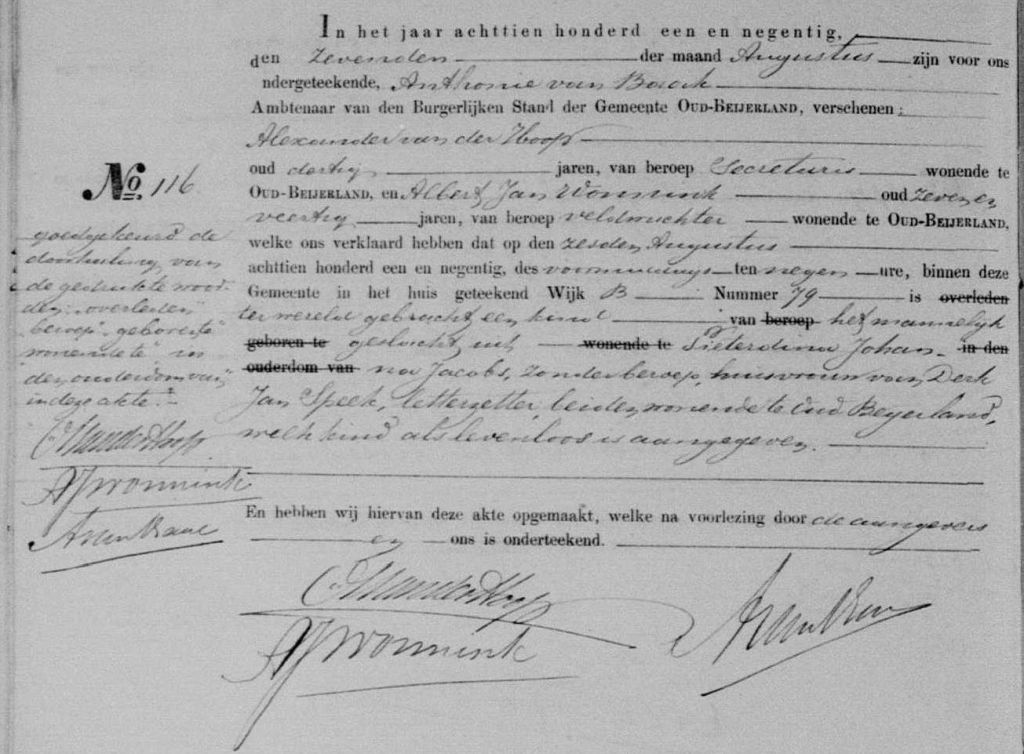 In het jaar achttien honderd een en negentig,
den zevenden der maand Augustus zijn voor ons
ndergeteekende, Anthonie van
Ambtenaar van den Burgerlijken Stand der Gemeente OUD-BEIJERLAND, verschenen:
Alexander van der Hoop
oud dertig jaren, van beroep Secretaris wonende te
OUD-BEIJERLAND, en Albert Jan Wonnink oud zeven en
veertig jaren, van beroep veldwachter wonende te OUD-BEIJERLAND,
welke ons verklaard hebben dat op den zesden Augustus
achttien honderd een en negentig, des voormiddags ten negen ure, binnen deze
Gemeente in het huis geteekend Wijk B Nummer 79 is overleden
ter wereld gebracht een kind van beroep het mannelijk
geboren te geslacht uit wonende te Pieterdina Johan- in den
ouderdom van na Jacobs, zonder beroep, huisvrouw van Derk
Jan Speek, letterzetter, beiden wonende te Oud Beyerland,
welk kind als levenloos is aangegeven.
En hebben wij hiervan deze akte opgemaakt, welke na voorlezing door de aangevers
en ons is onderteekend.
vanderHoop
AJWonnink
No. 116
goedgekeurd de
doorhaling van
de gedrukte woor-
den: "overleden"
"beroep" "geboren te"
"wonende te" in
"den ouderdom van"
in deze akte.
vanderHoop
AJWonnink